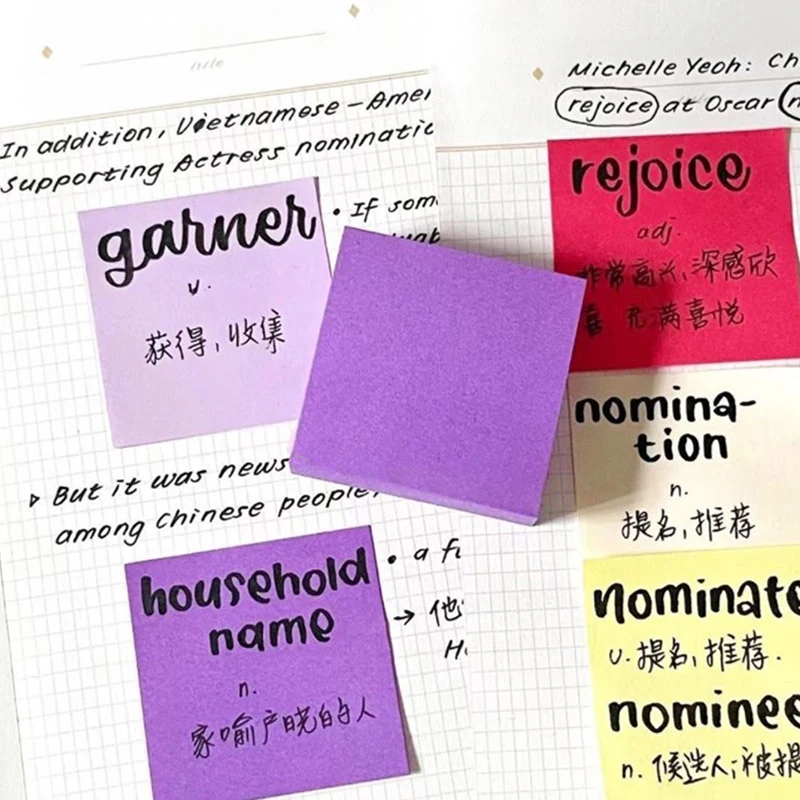 In addition, Vietnamese – Amer
supporting Actress nominatic
garner
v.
获得,收集
• If som
▷ But it was news
among Chinese people,
household
name
n.
家喻户晓的人
• a fi
→ 他
H
Michelle Yeoh: Ch
rejoice at Oscar n
rejoice
adj.
非常高兴,深感欣
喜,充满喜悦
nomina-
tion
n.
提名,推荐
nominate
v. 提名,推荐.
nominee
n. 候选人;被提